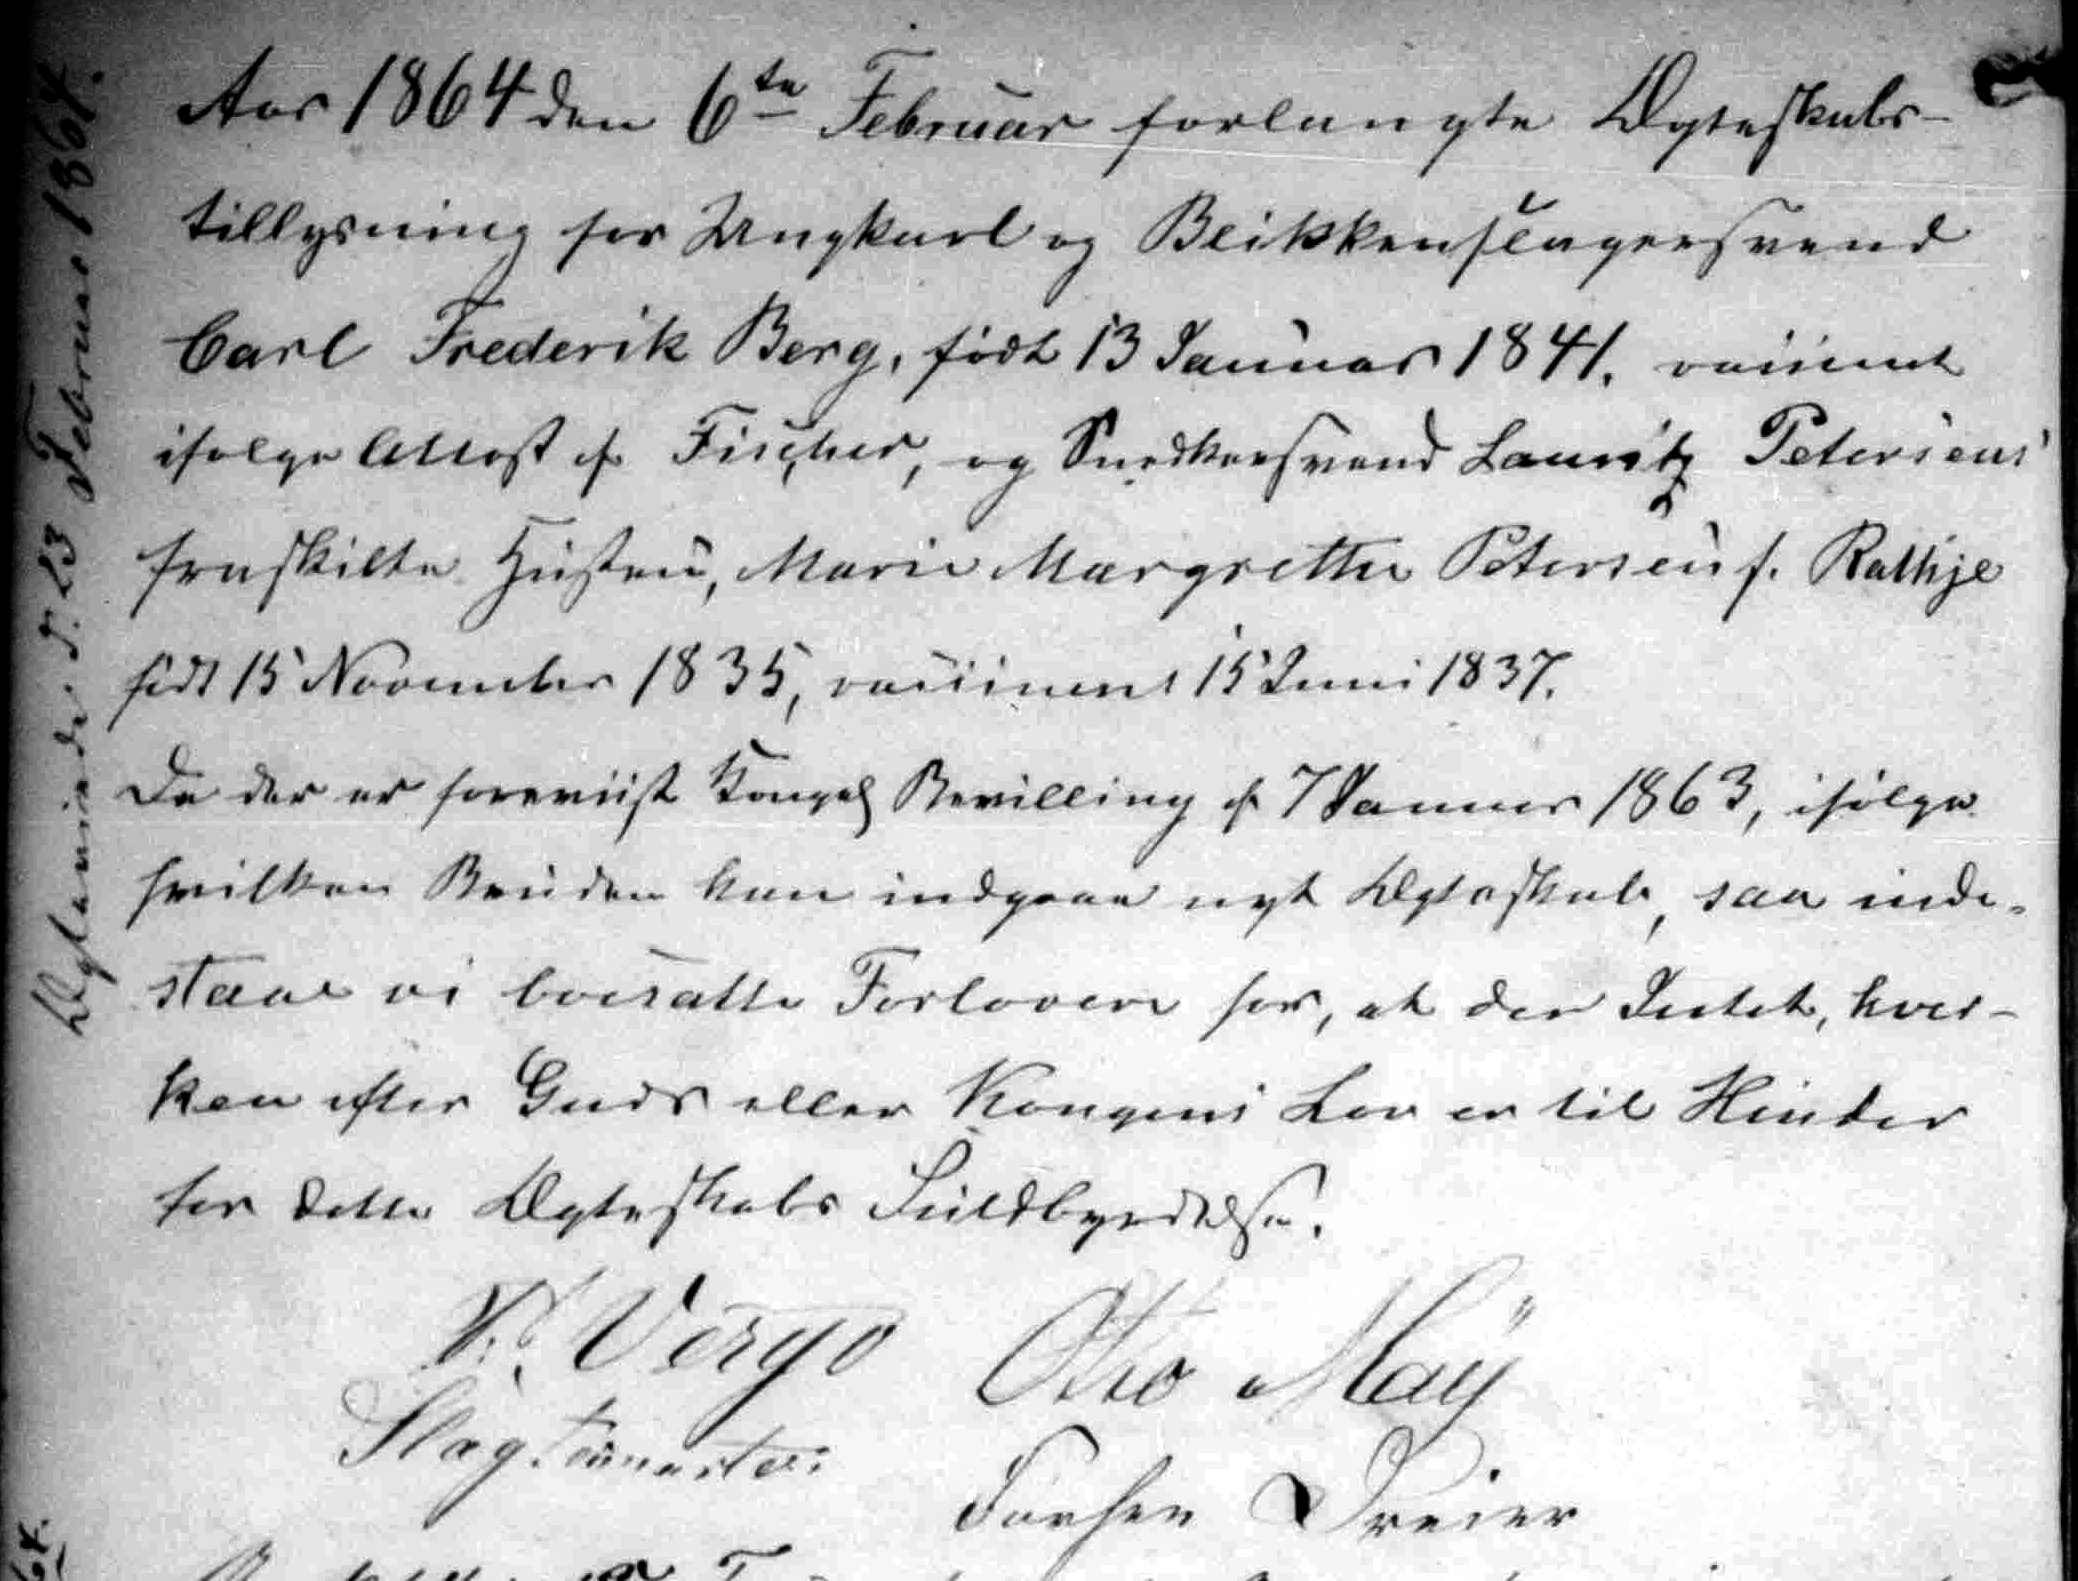 Aar 1864 den 6te Februar forlangte Ægteskabs-
tillysning for Ungkarl og Blikkenslagersvend
Carl Frederik Berg, født 13 Januar 1841. vaccineret
ifølge Attest af Fischer, og Snedkersvend Lauritz Petersens
fraskilte Hustru, Marie Margrethe Petersen f. Rathje
født 15 November 1835, vaccineret 15 Juni 1837.
Da der er foreviist Kongel Bevilling af 7 Januar 1863, ifølge
hvilken Bruden kan indgaae nyt Ægteskab, saa inde-
staae vi boesatte Forlovere for, at der Intet, hver-
ken efter Guds eller Kongens Lov er til Hinder
for dette Ægteskabs Fuldbyrdelse.
Virgo Otto Maÿ
Slagtermester
Dreier
Ægteviede d. 23 Februar 1864.